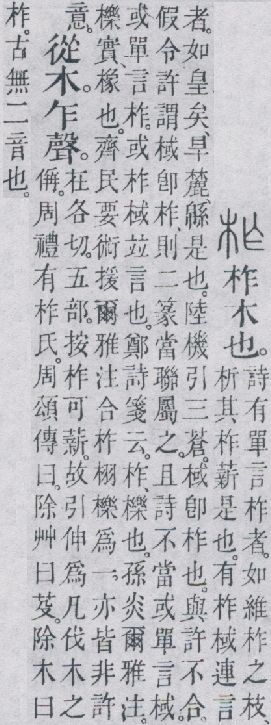 柞木也。
詩有單言柞者。如維柞之枝
析其柞薪是也。有柞棫連言
者。如皇矣、旱麓、緜是也。陸機引三蒼。棫卽柞也。與許不合。
假令許謂棫卽柞、則二篆當聯屬之。且詩不當或單言棫。
或單言柞。或柞棫竝言也。鄭詩箋云。柞、櫟也。孫炎爾雅注。
櫟實、橡也。齊民要術援爾雅注合柞栩櫟爲一。亦皆非許
意。
從木乍聲。
在各切。五部。按柞可薪。故引伸爲凡伐木之
偁。周禮有柞氏。周頌傳曰。除艸曰芟。除木曰
柞。古無二音也。